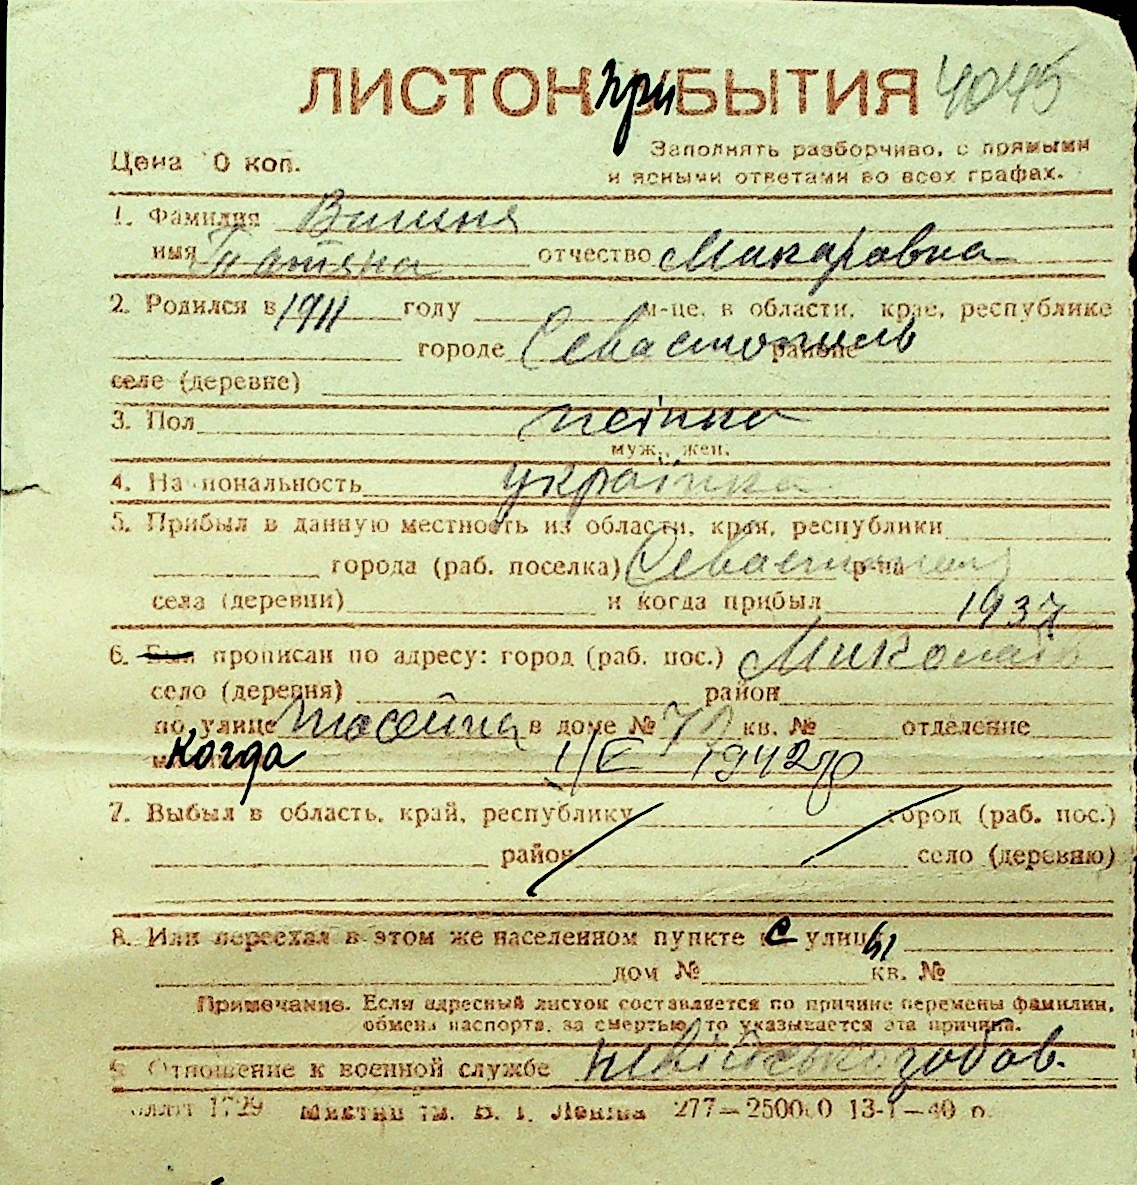 ЛИСТОК при БЫТИЯ 4045
Цена 0 коп. Заполнять разборчиво, с прямыми
и ясными ответами во всех графах.
1. Фамилия
имя Татяна отчество Макаровна
2. Родился в 1911 году м-це, в области, крае, республике
городе Севастополь районе
селе (деревне)
3. Пол жінка
муж., жен.
4. Национальность українка
5. Прибыл в данную местность из области, края, республики
города (раб. поселка) Севастополь р-на
села (деревни) и когда прибыл 1937
6. Был прописан по адресу: город (раб. пос.) Миколаїв
село (деревня) район
по улице в доме № кв. № отделение
когда 1942 р
7. Выбыл в область, край, республику город (раб. пос.)
район село (деревню)
8. Или переехал в этом же населенном пункте с улицы
дом № кв. №
Примечание. Если адресный листок составляется по причине перемены фамилии,
обмена паспорта, за смертью, то указывается эта причина.
9. Отношение к военной службе невійськозобов.
1729 им. В. И. Ленина 277—250000 13-I—40 г.